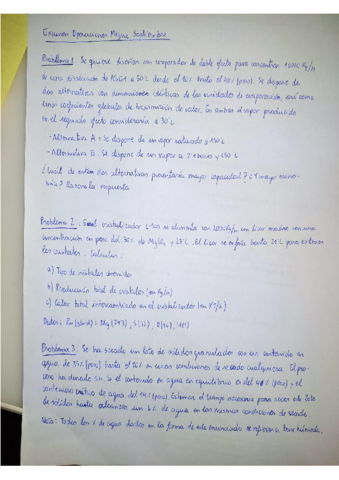 Examen Operaciones Mayo Septiembre
Problema 1. Se quiere diseñar un evaporador de doble efecto para concentrar 10000 Kg/h
de una disolución de NaOH a 50°C desde el 10% hasta el 20% (peso). Se dispone de
dos alternativas con dimensiones idénticas de las unidades de evaporación, así como
unos coeficientes globales de transmisión de calor. En ambas el vapor producido
en el segundo efecto condensaría a 30°C
- Alternativa A: Se dispone de un vapor saturado a 150°C
- Alternativa B. Se dispone de un vapor a y 150°C
¿Cuál de estas dos alternativas presentaría mayor capacidad? ¿Y mayor econo-
mía? Razona la respuesta.
Problema 2. Un cristalizador se alimenta con Kg/h un licor madre con una
concentración en peso del 30% de MgSO4 y . El licor se enfría hasta para extraer
los cristales. Calcular:
a) Tipo de cristales obtenidos
b) Producción total de cristales (en Kg/h)
c) Calor total intercambiado en el cristalizador (en KJ/h)
Datos: Pm (g/mol): Mg (24'3), S (32), O (16), H (1)
Problema 3. Se ha secado un lote de sólidos granulados con un contenido en
agua de 35% (peso) hasta el % en unas condiciones de secado cualquiera. El pro-
ceso ha durado 5h. Si el contenido en agua en equilibrio es del 4% (peso), y el
contenido crítico de agua del 14% (peso). Estimar el tiempo necesario para secar este lote
de sólidos hasta alcanzar un 6% de agua en las mismas condiciones de secado.
Nota: Todos los % de agua dados en la forma de este enunciado se refieren a base húmeda.